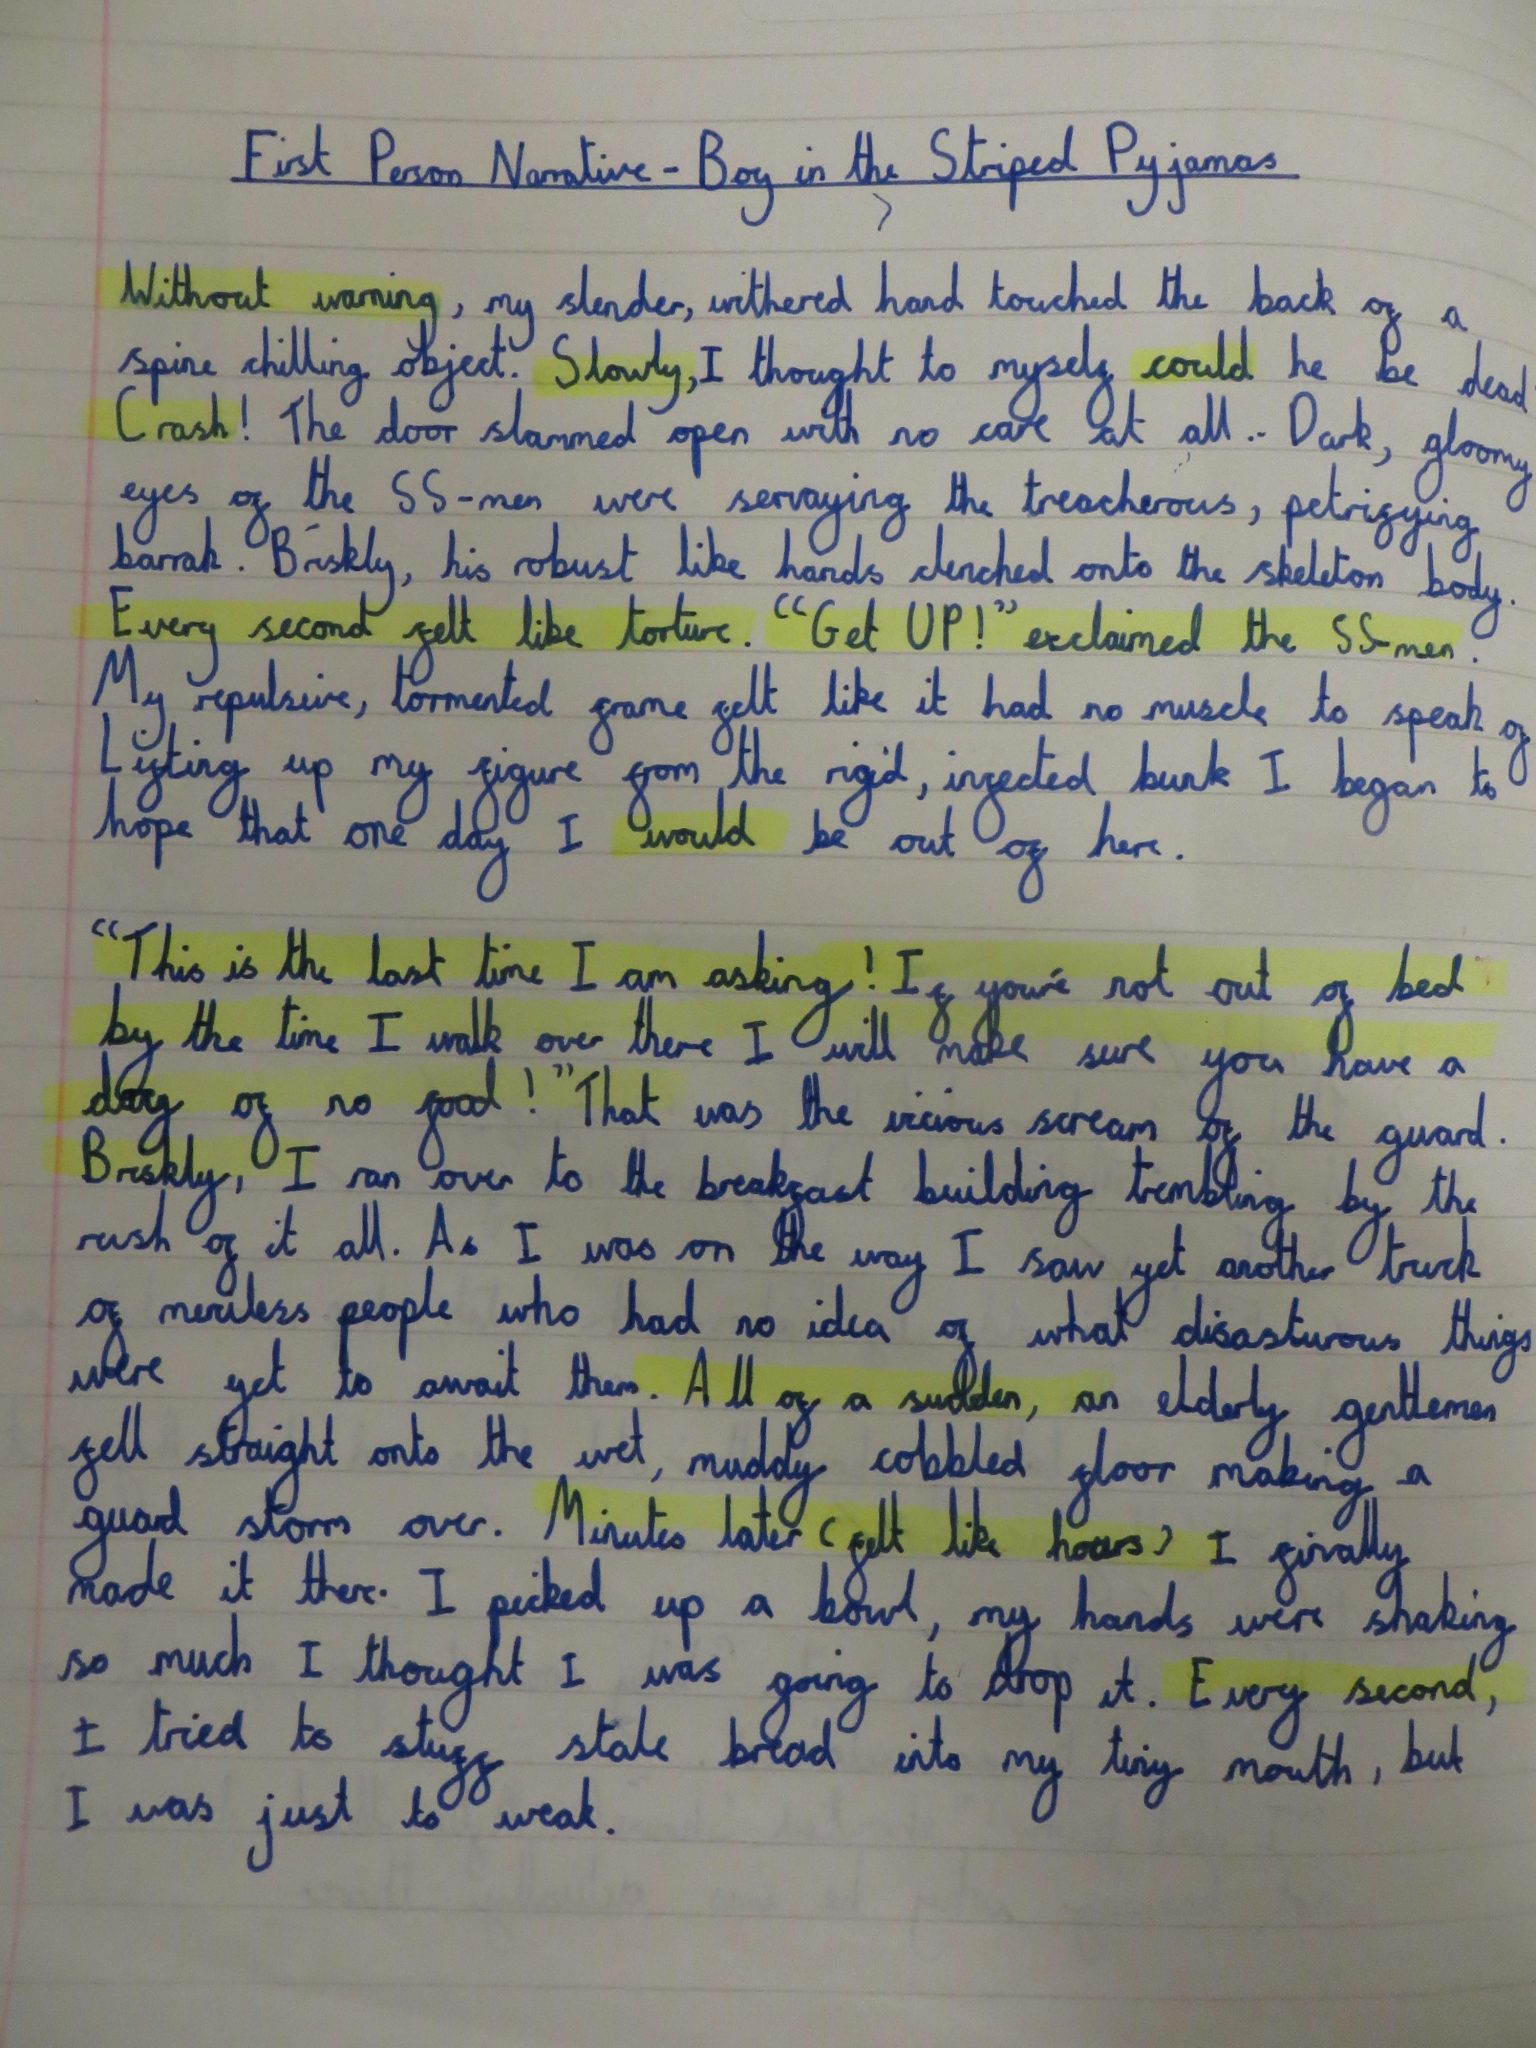 First Person Narrative - Boy in the Striped Pyjamas
Without warning, my slender, withered hand touched the back of a
spine chilling object. Slowly, I thought to myself could he be dead
Crash! The door slammed open with no care at all.. Dark, gloomy
eyes of the SS-men were servaying the treacherous, petrifying
barrak. Briskly, his robust like hands clenched onto the skeleton body.
Every second felt like torture. "Get UP!" exclaimed the SS-men.
My repulsive, tormented frame felt like it had no muscle to speak of
Lifting up my figure from the rigid, infected bunk I began to
hope that one day I would be out of here.
"This is the last time I am asking! If you're not out of bed
by the time I walk over there I will make sure you have a
day of no food!" That was the vicious scream of the guard.
Briskly, I ran over to the breakfast building trembling by the
rush of it all. As I was on the way I saw yet another truck
of merciless people who had no idea of what disasturous things
were yet to await them. All of a sudden, an elderly gentlemen
fell straight onto the wet, muddy cobbled floor making a
guard storm over. Minutes later (felt like hours) I finally
made it there. I picked up a bowl, my hands were shaking
so much I thought I was going to drop it. Every second,
I tried to stuff stale bread into my tiny mouth, but
I was just to weak.